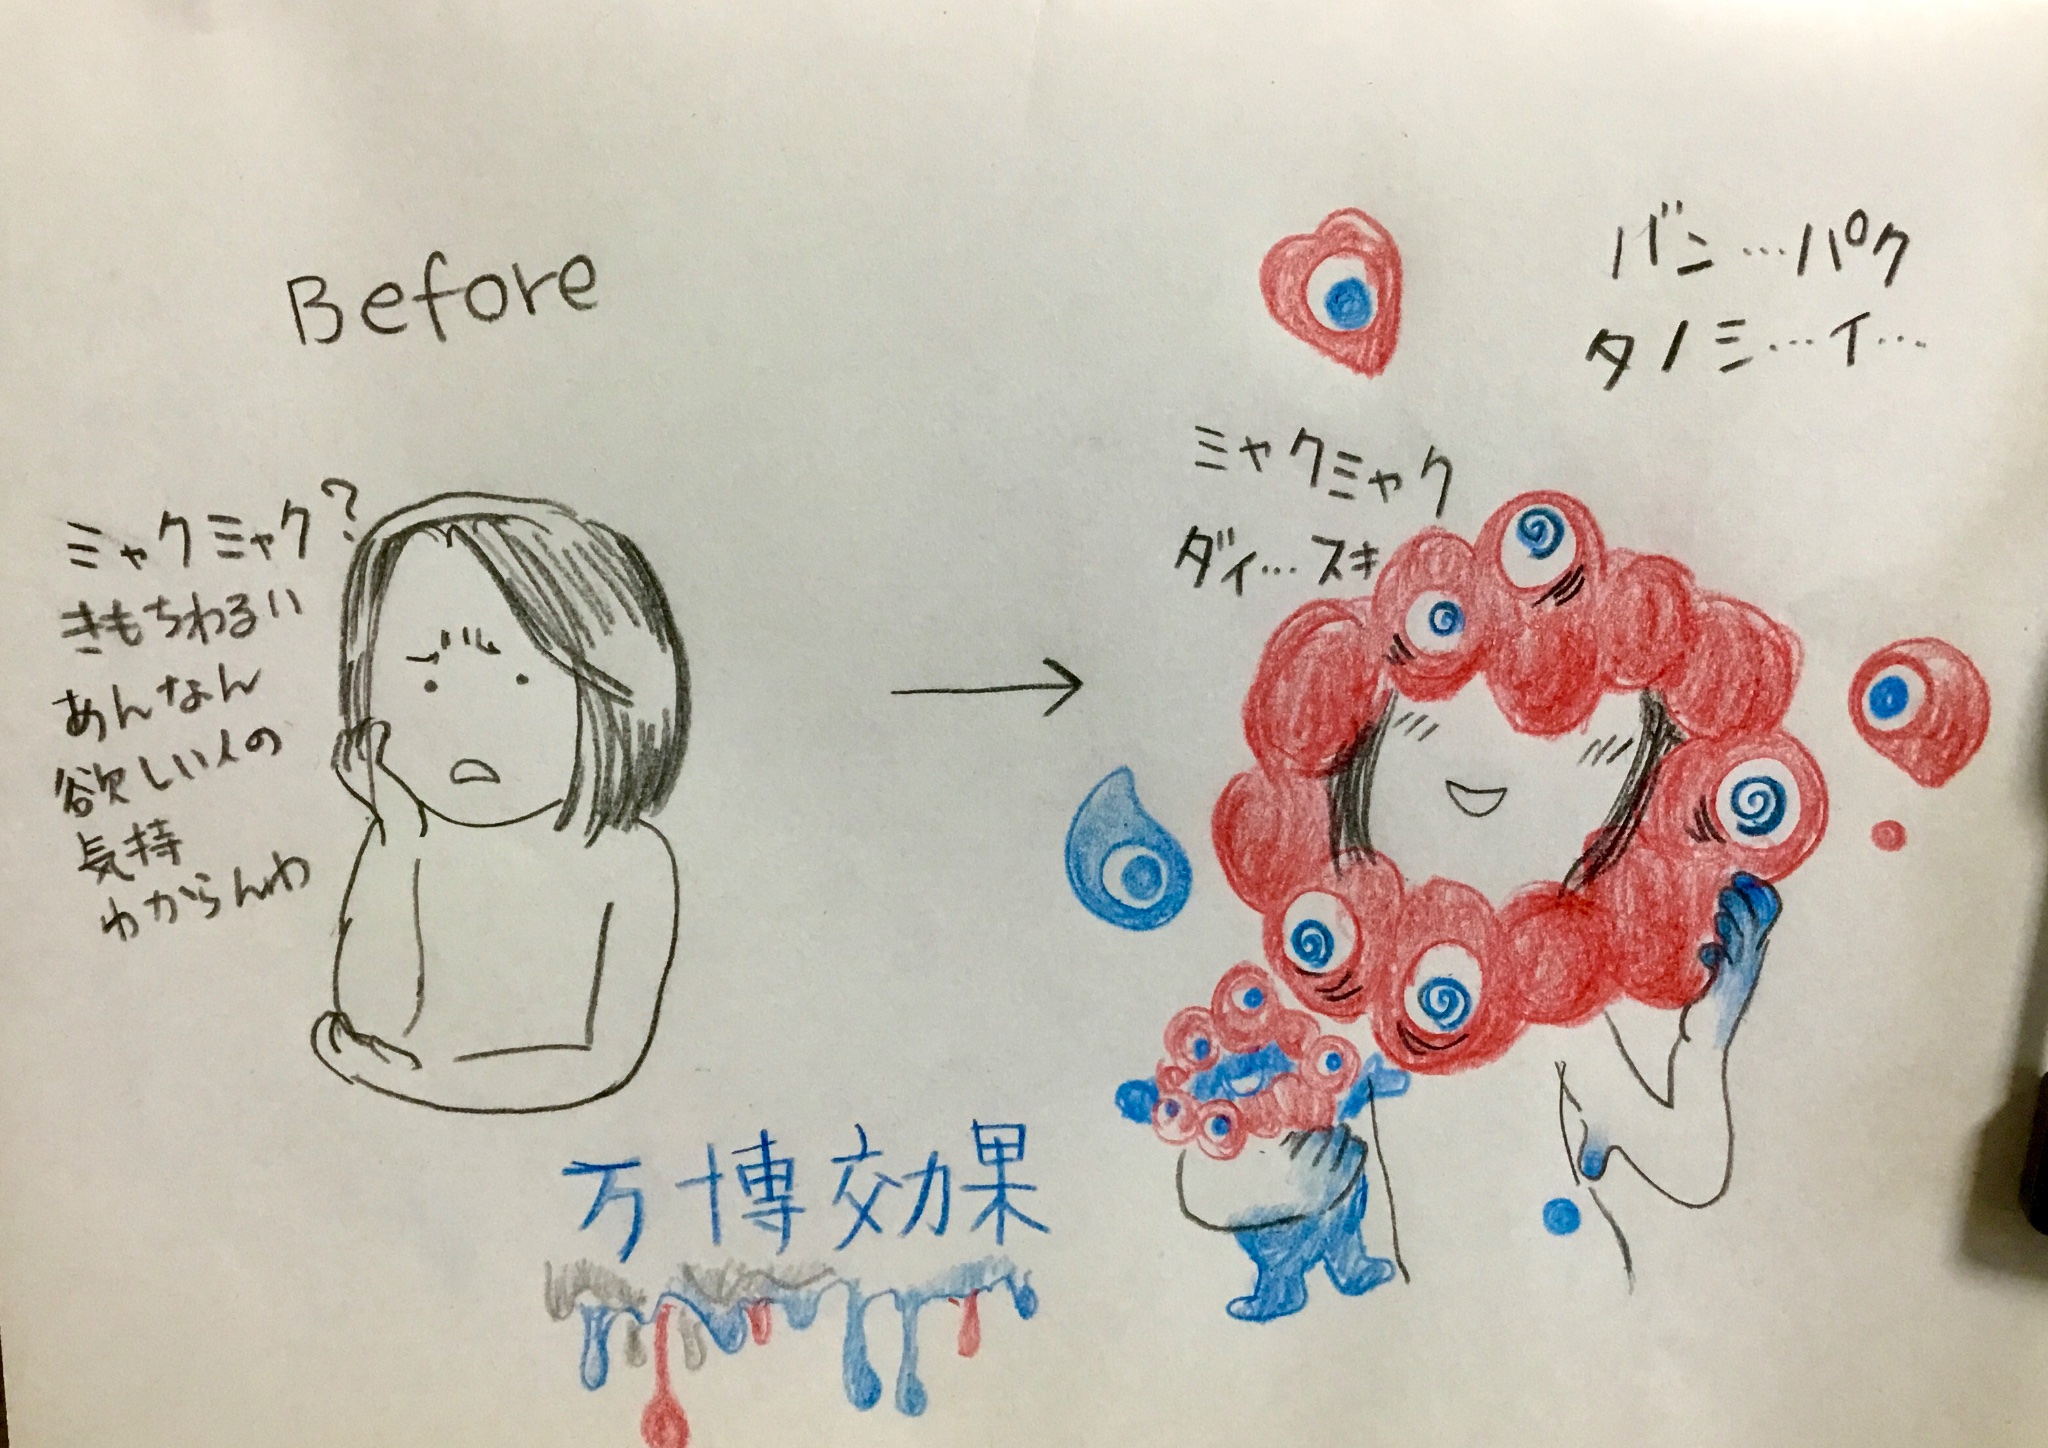 Before
ミャクミャク?
きもちわるい
あんなん
欲しい人の
気持
わからんわ
バン…パク
タノミ…イ…
ミャクミャク
ダイ…スキ
万博効果